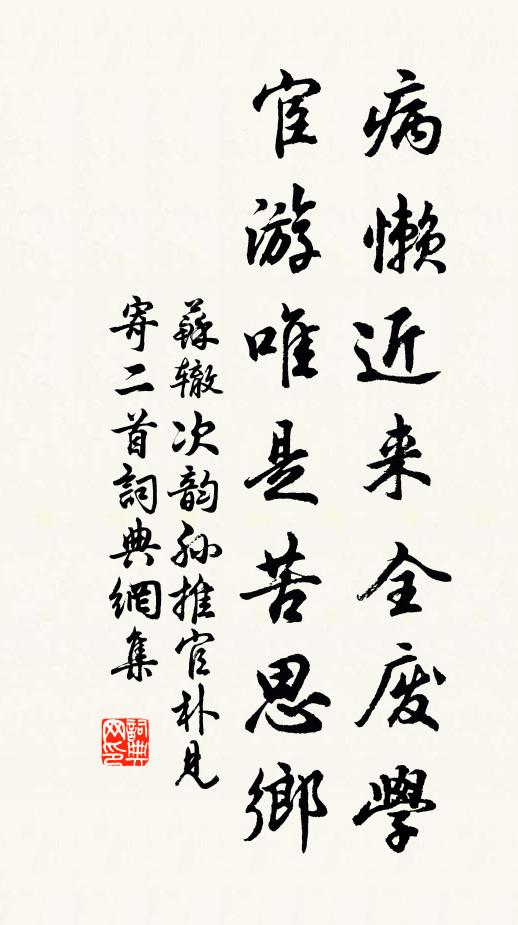 病懒近来全废學
宦游唯是苦思鄉
蘇辙次韵孙推官朴见
寄二首詞典網集
詞典网印